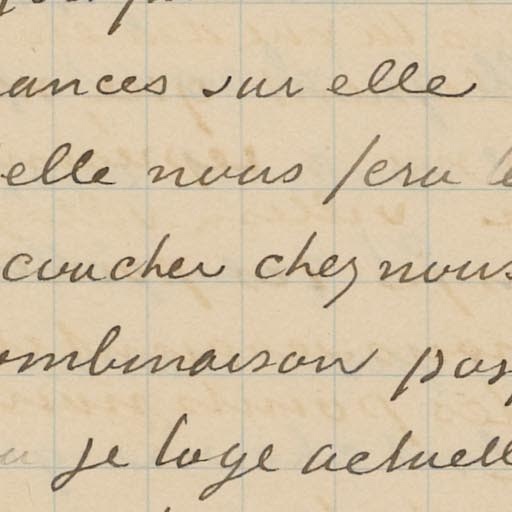 ances sur elle
elle nous fera le
coucher chez nous
ombinaison pos
je loge actuell